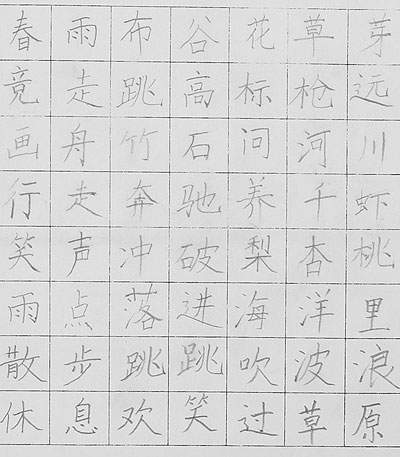 春雨布谷花草芽
竟走跳高标枪远
画舟竹石问河川
行走奔驰养千虾
笑声冲破梨杏桃
雨点落进海洋里
散步跳跳吹波浪
休息欢笑过草原